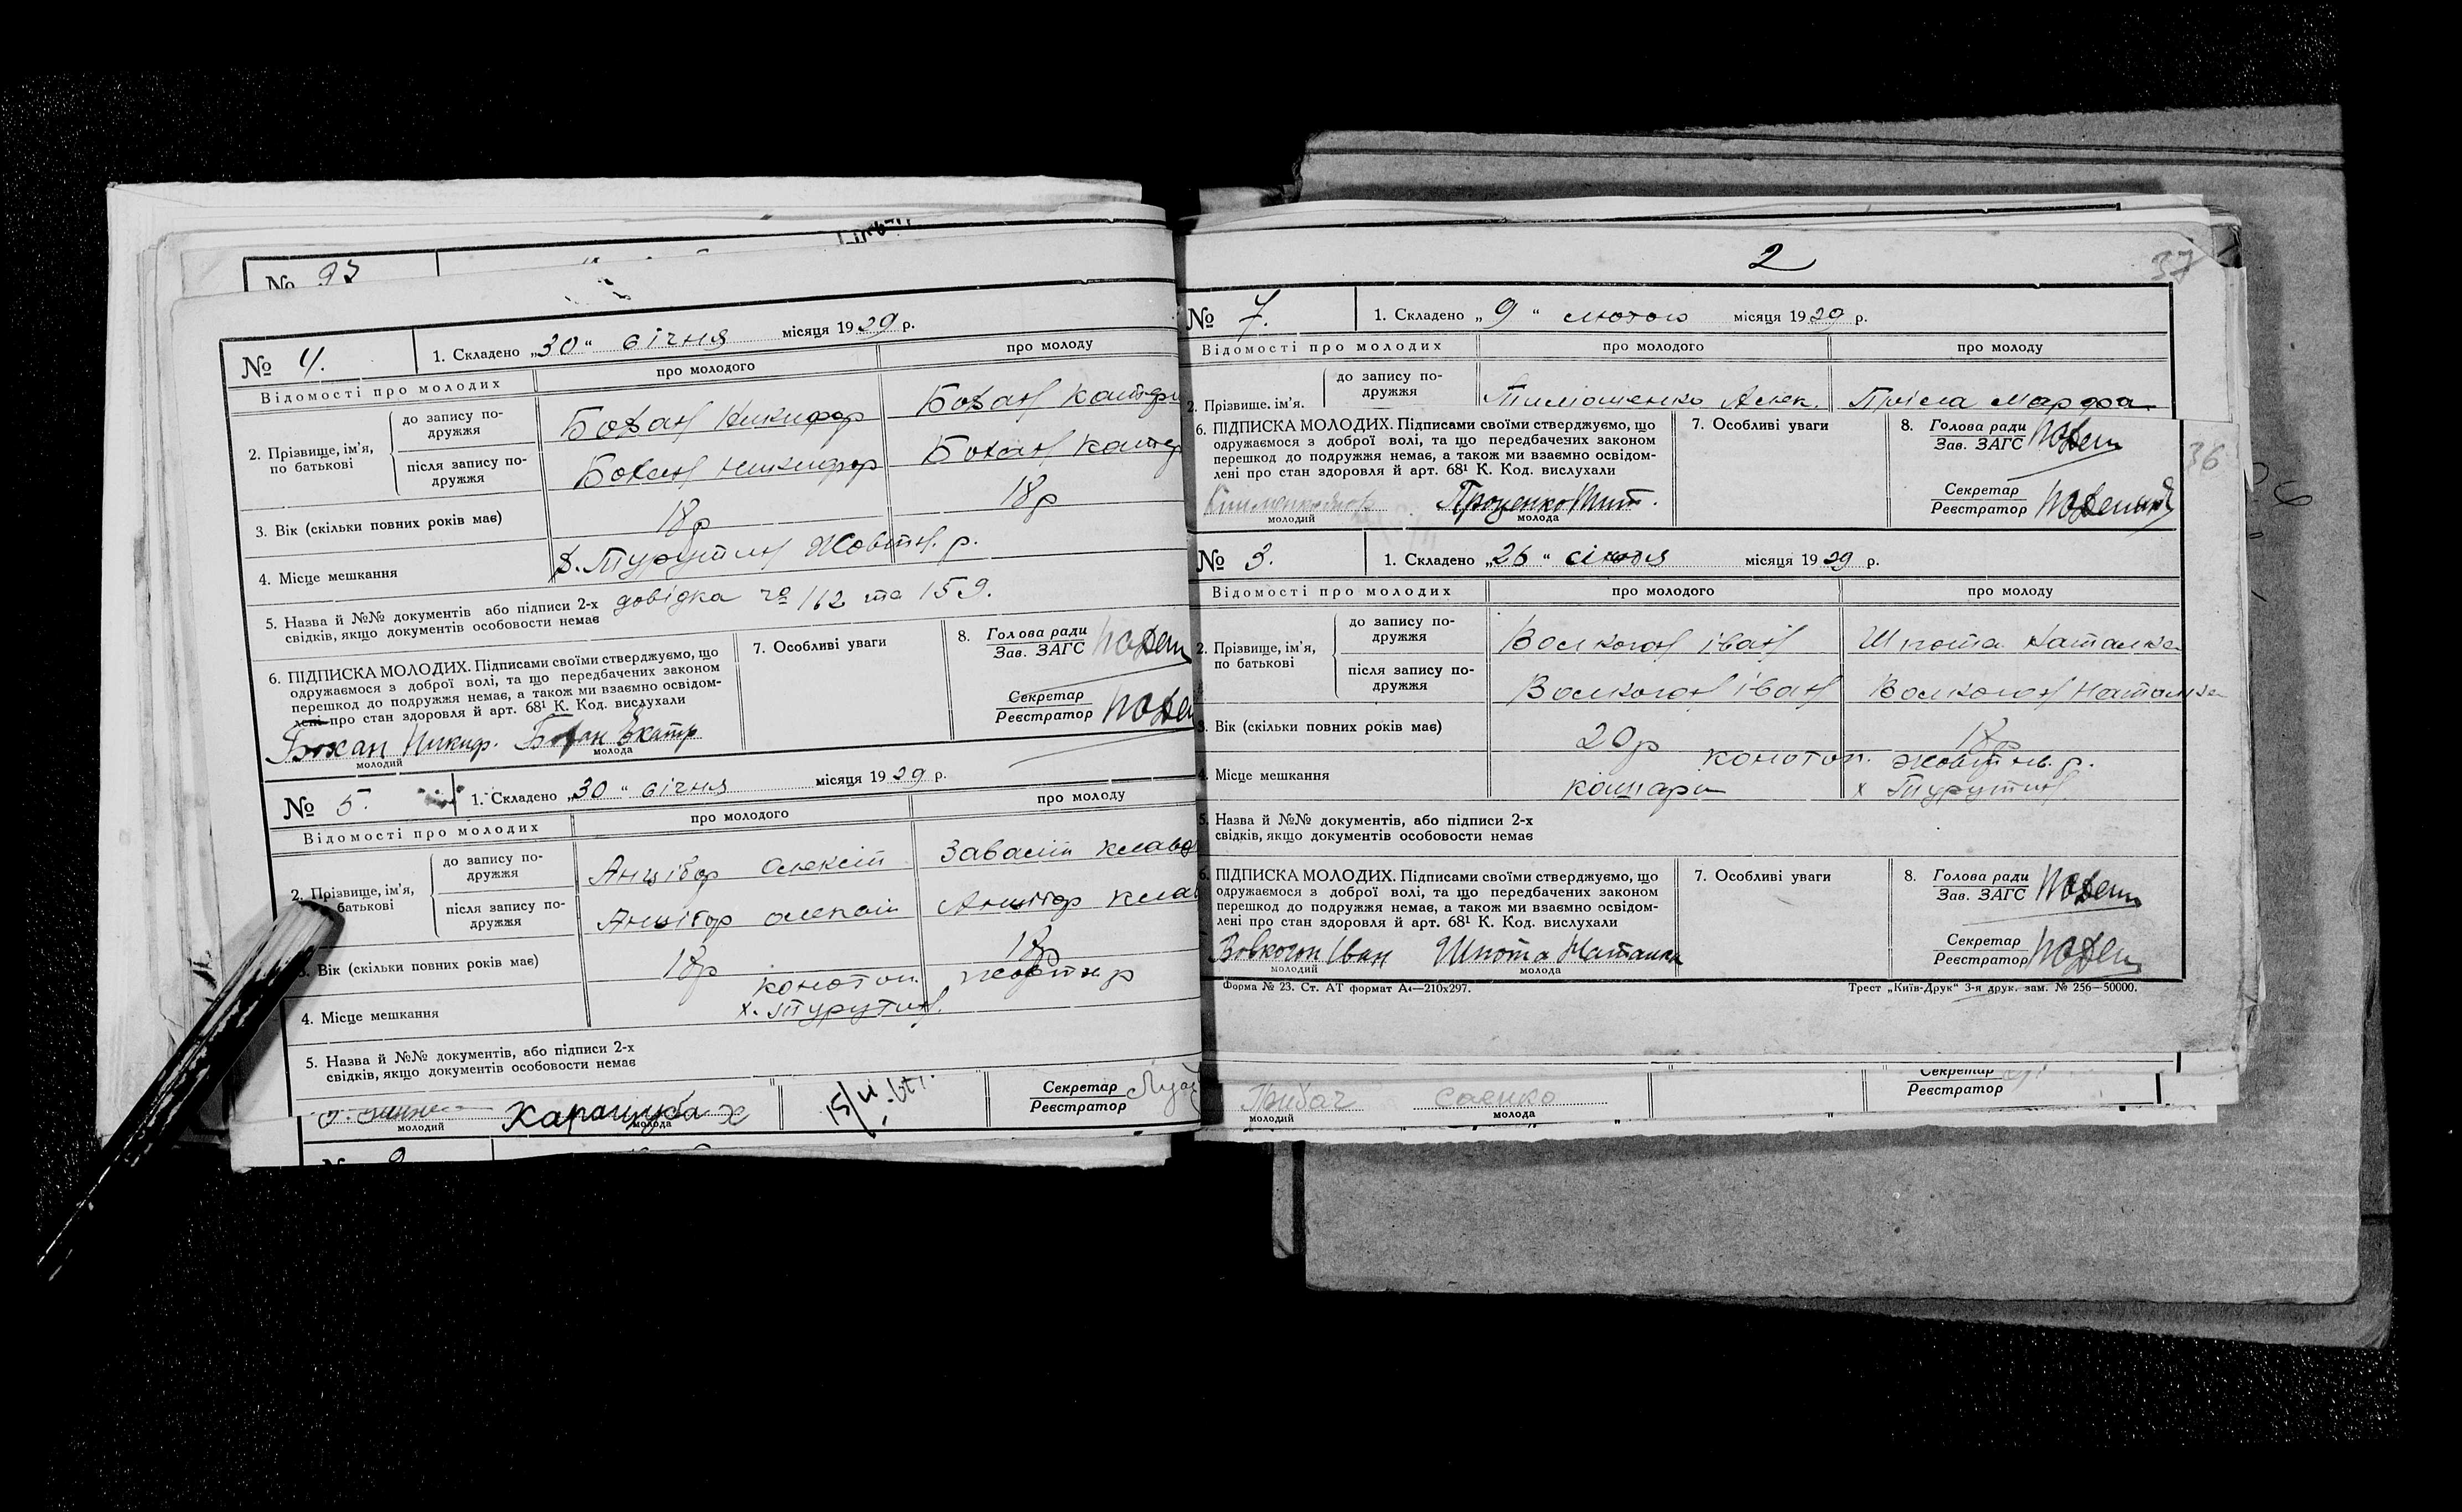 № 93
№ 4.
1. Складено „30“ січня місяця 1929 р.
Відомості про молодих
про молодого
про молоду
2. Прізвище, ім’я, по батькові
до запису по-
дружжя
Божан Никифор
Божан
після запису по-
дружжя
Божан Никифор
Божан
3. Вік (скільки повних років має)
18р
18р
4. Місце мешкання
х. Турутин Жовтн. р.
5. Назва й №№ документів або підписи 2-х
свідків, якщо документів особовости немає
довідка № 162 та 159.
6. ПІДПИСКА МОЛОДИХ. Підписами своїми стверджуємо, що
одружаємося з доброї волі, та що передбачених законом
перешкод до подружжя немає, а також ми взаємно освідом-
лені про стан здоровля й арт. 68¹ К. Код. вислухали
Божан Никиф. Божан Екатр
молодий
молода
7. Особливі уваги
8. Голова ради
Зав. ЗАГС
Секретар
Реєстратор
№ 5.
1. Складено „30“ січня місяця 1929 р.
Відомості про молодих
про молодого
про молоду
2. Прізвище, ім’я,
батькові
до запису по-
дружжя
Анцібор Олексій
Завалій Клавд
після запису по-
дружжя
Анцібор Олексій
Анцібор Клав
Вік (скільки повних років має)
18р
18р
4. Місце мешкання
Конотоп. Жовтн р
х. Турутин.
5. Назва й №№ документів, або підписи 2-х
свідків, якщо документів особовости немає
Карацюба х
молодий
молода
Секретар
Реєстратор
2
37
№ 7.
1. Складено „9“ лютого місяця 1929 р.
Відомості про молодих
про молодого
про молоду
2. Прізвище, ім’я.
до запису по-
дружжя
Тимошенко Алек.
Прісла Марфа
6. ПІДПИСКА МОЛОДИХ. Підписами своїми стверджуємо, що
одружаємося з доброї волі, та що передбачених законом
перешкод до подружжя немає, а також ми взаємно освідом-
лені про стан здоровля й арт. 68¹ К. Код. вислухали
Проценко
молодий
молода
7. Особливі уваги
8. Голова ради
Зав. ЗАГС
Секретар
Реєстратор
36
№ 3.
1. Складено „26“ січня місяця 1929 р.
Відомості про молодих
про молодого
про молоду
2. Прізвище, ім’я,
по батькові
до запису по-
дружжя
Волкогон Іван
Шпота Наталка
після запису по-
дружжя
Волкогон Іван
Волкогон Наталка
3. Вік (скільки повних років має)
20р
18р
4. Місце мешкання
Конотоп. Жовтнв. р.
кошари
х Турутин.
5. Назва й №№ документів, або підписи 2-х
свідків, якщо документів особовости немає
6. ПІДПИСКА МОЛОДИХ. Підписами своїми стверджуємо, що
одружаємося з доброї волі, та що передбачених законом
перешкод до подружжя немає, а також ми взаємно освідом-
лені про стан здоровля й арт. 68¹ К. Код. вислухали
Вовкогон Іван Шпота Наталка
молодий
молода
7. Особливі уваги
8. Голова ради
Зав. ЗАГС
Секретар
Реєстратор
Форма № 23. Ст. АТ формат А4—210х297.
Трест „Київ-Друк“ 3-я друк. зам. № 256—50000.
Грибач
Саєнко
молодий
молода
Секретар
Реєстратор